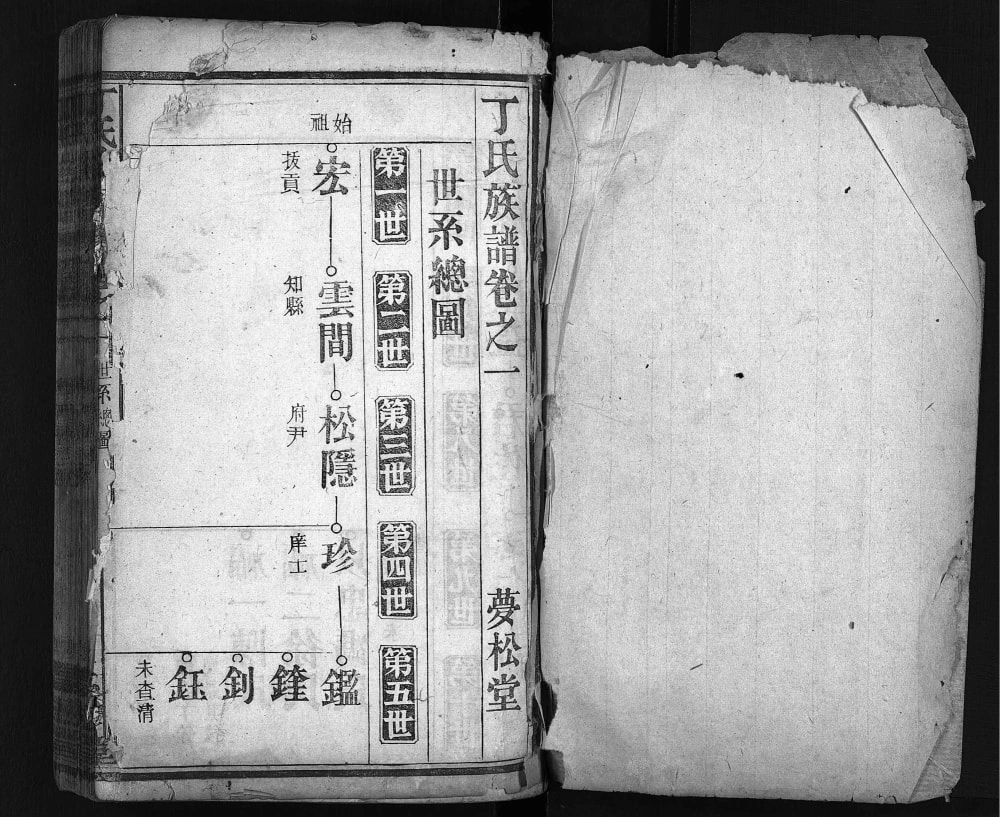 丁氏族譜卷之一
夢松堂
世系總圖
第一世
第二世
第三世
第四世
第五世
始祖
宏
拔貢
雲間
知縣
松隱
府尹
珍
庠士
鑑
錴
釗
鈺
未查清
世系總圖